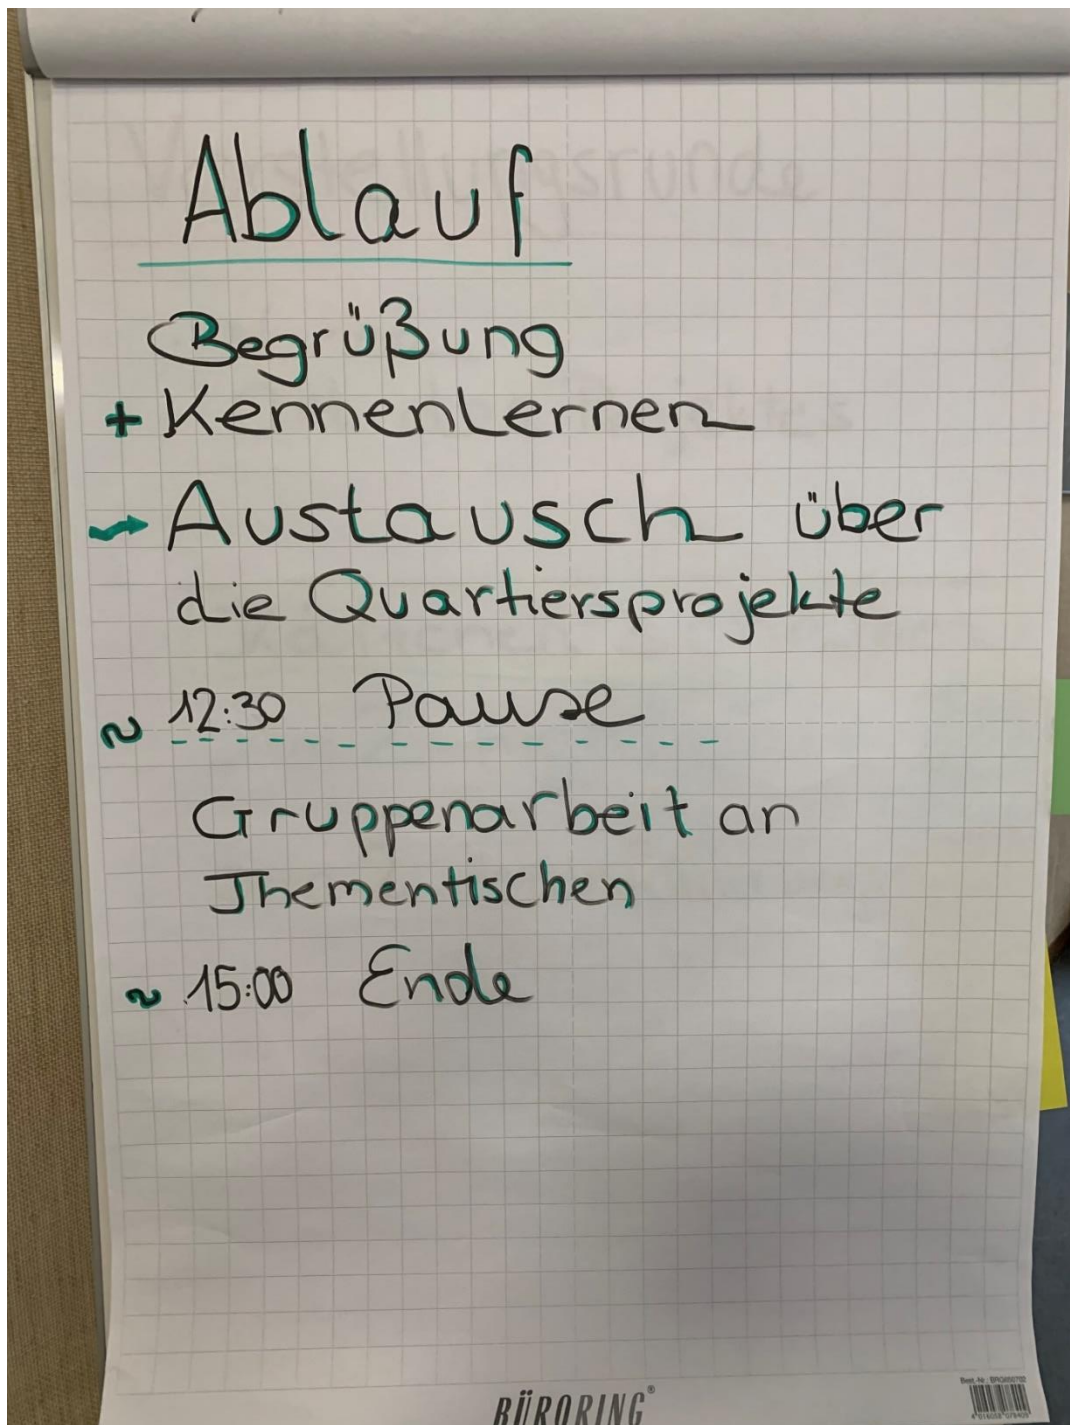 Ablauf
Begrüßung
+ Kennenlernen
→ Austausch über
die Quartiersprojekte
~ 12:30 Pause
Gruppenarbeit an
Thementischen
~ 15:00 Ende
BÜRORING®